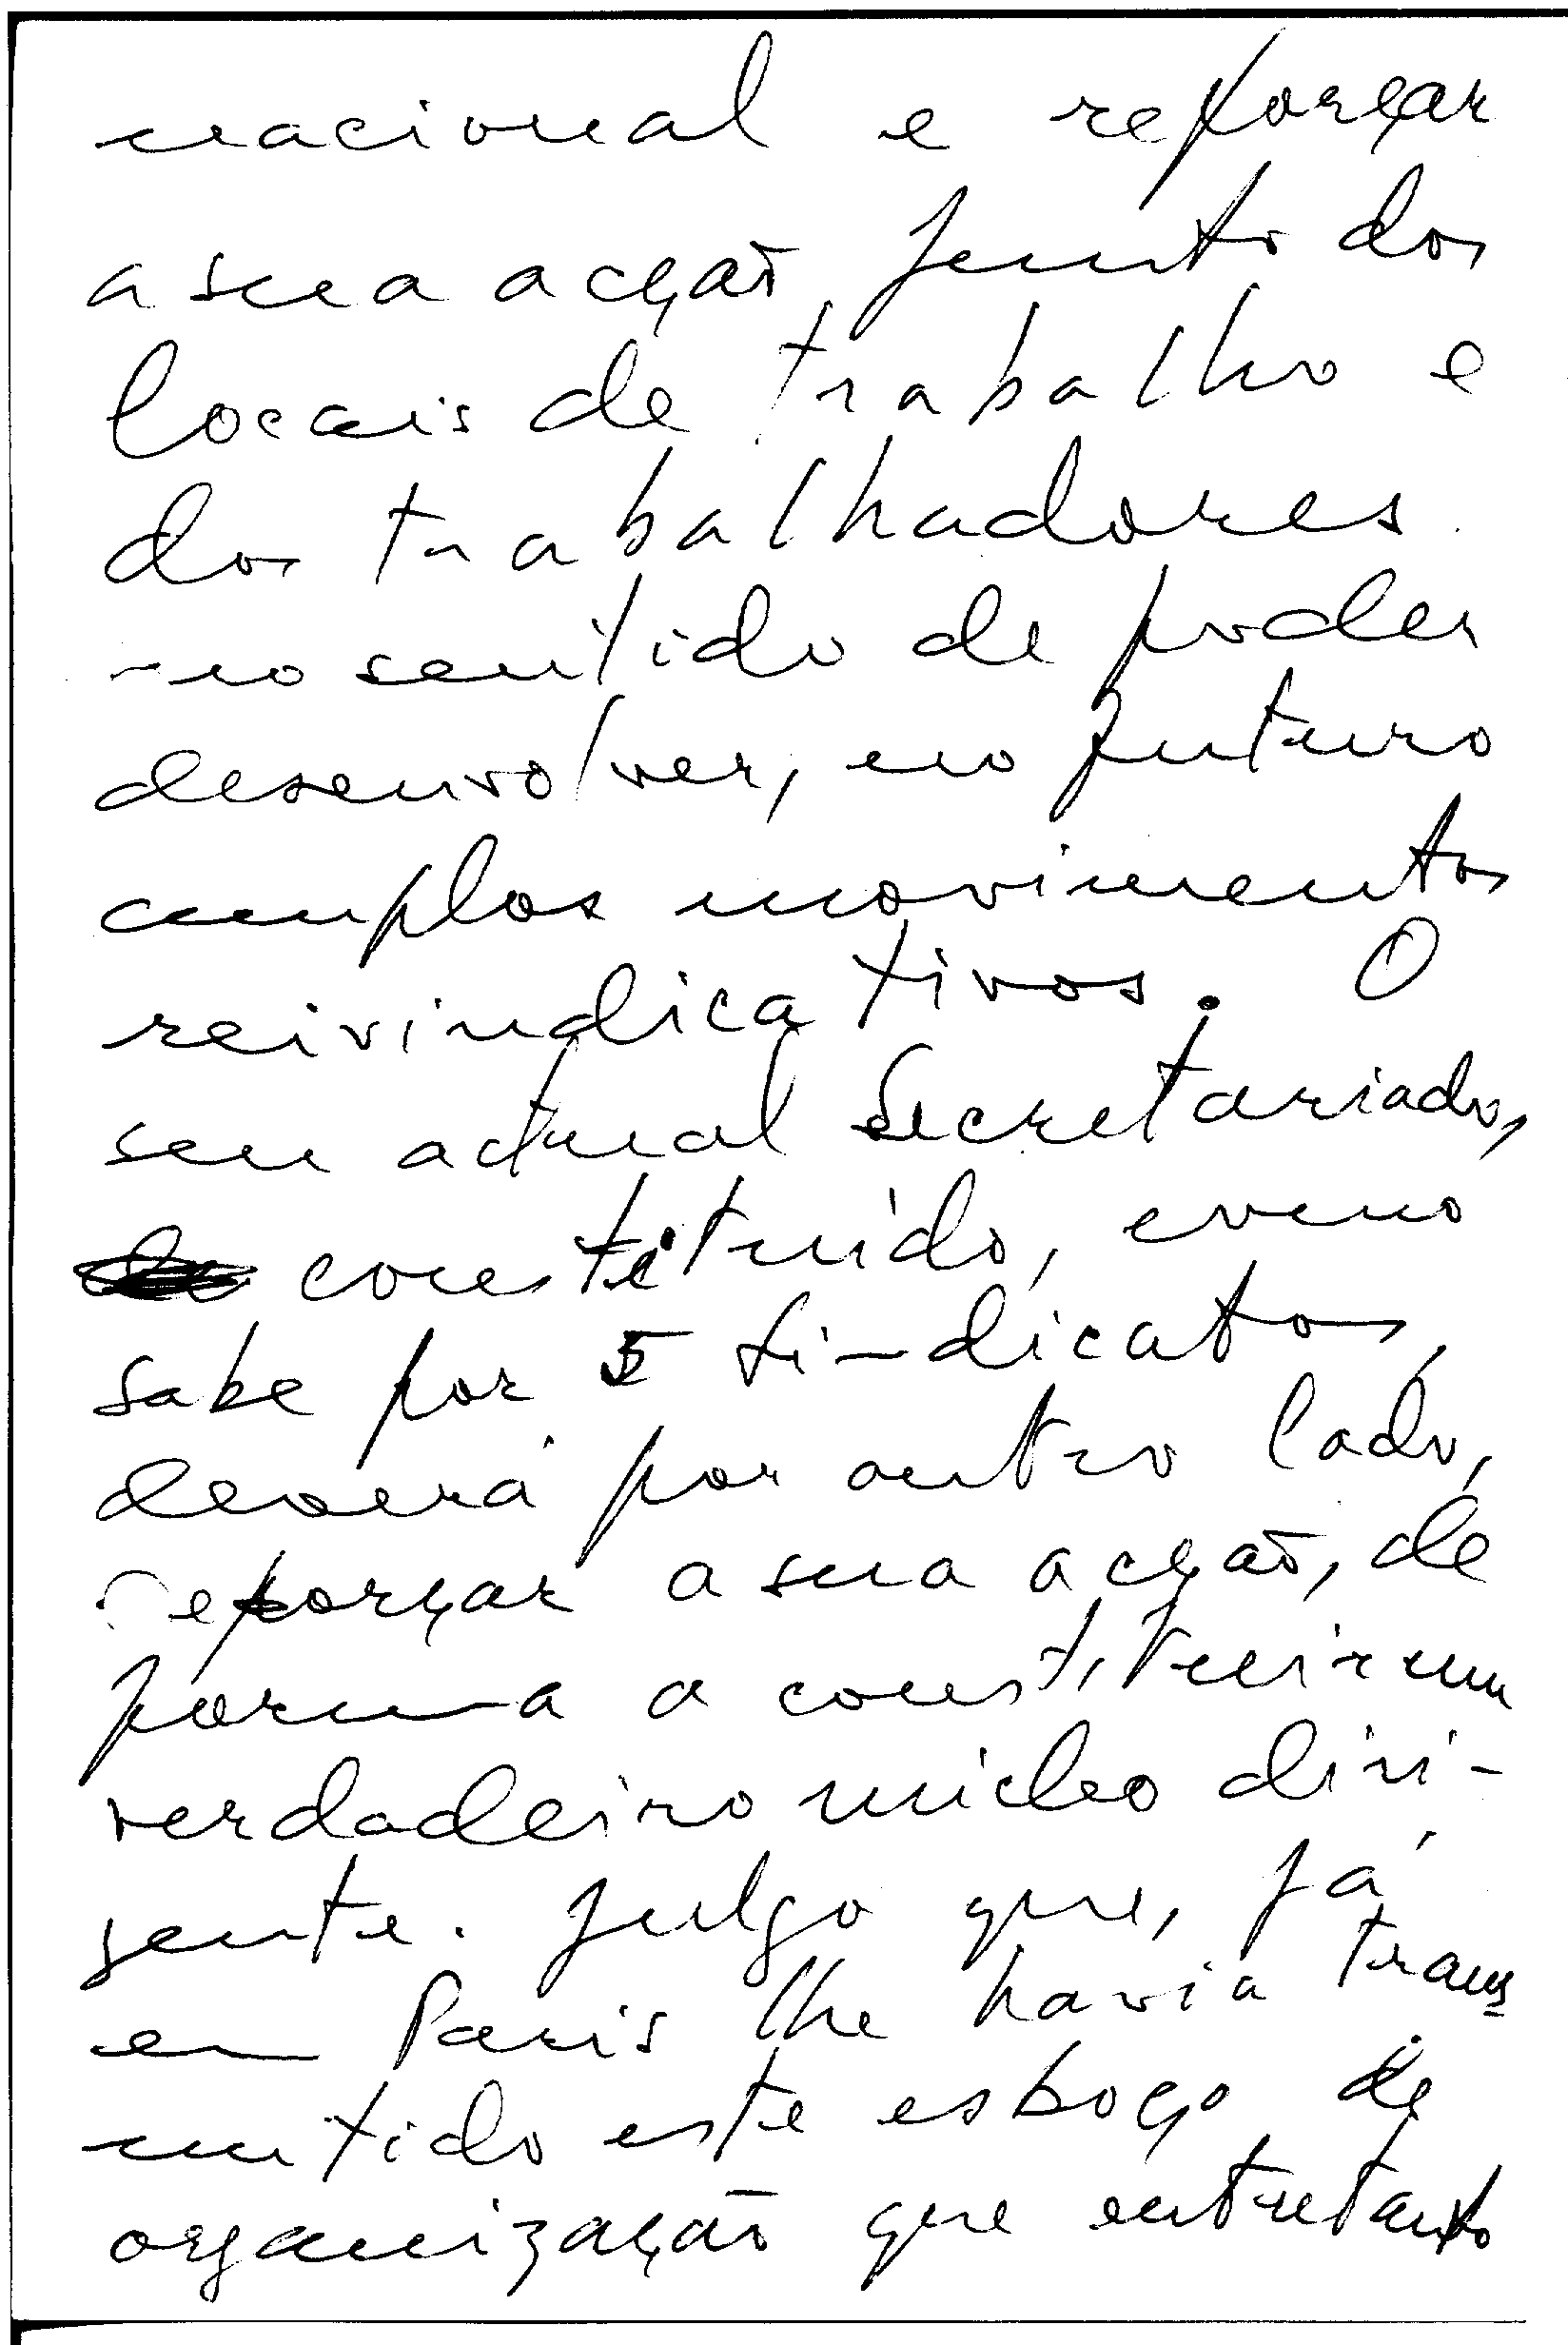 nacional e reforçar
a sua acção junto dos
locais de trabalho e
dos trabalhadores
no sentido de poder
desenvolver, no futuro
amplos movimentos
reivindicativos. O
seu actual Secretariado,
constituído, como
sabe por 5 sindicatos,
deverá por outro lado,
reforçar a sua acção, de
forma a constituir um
verdadeiro núcleo diri-
gente. Julgo que, já
em Paris lhe havia trans
mitido este esboço de
organização que entretanto